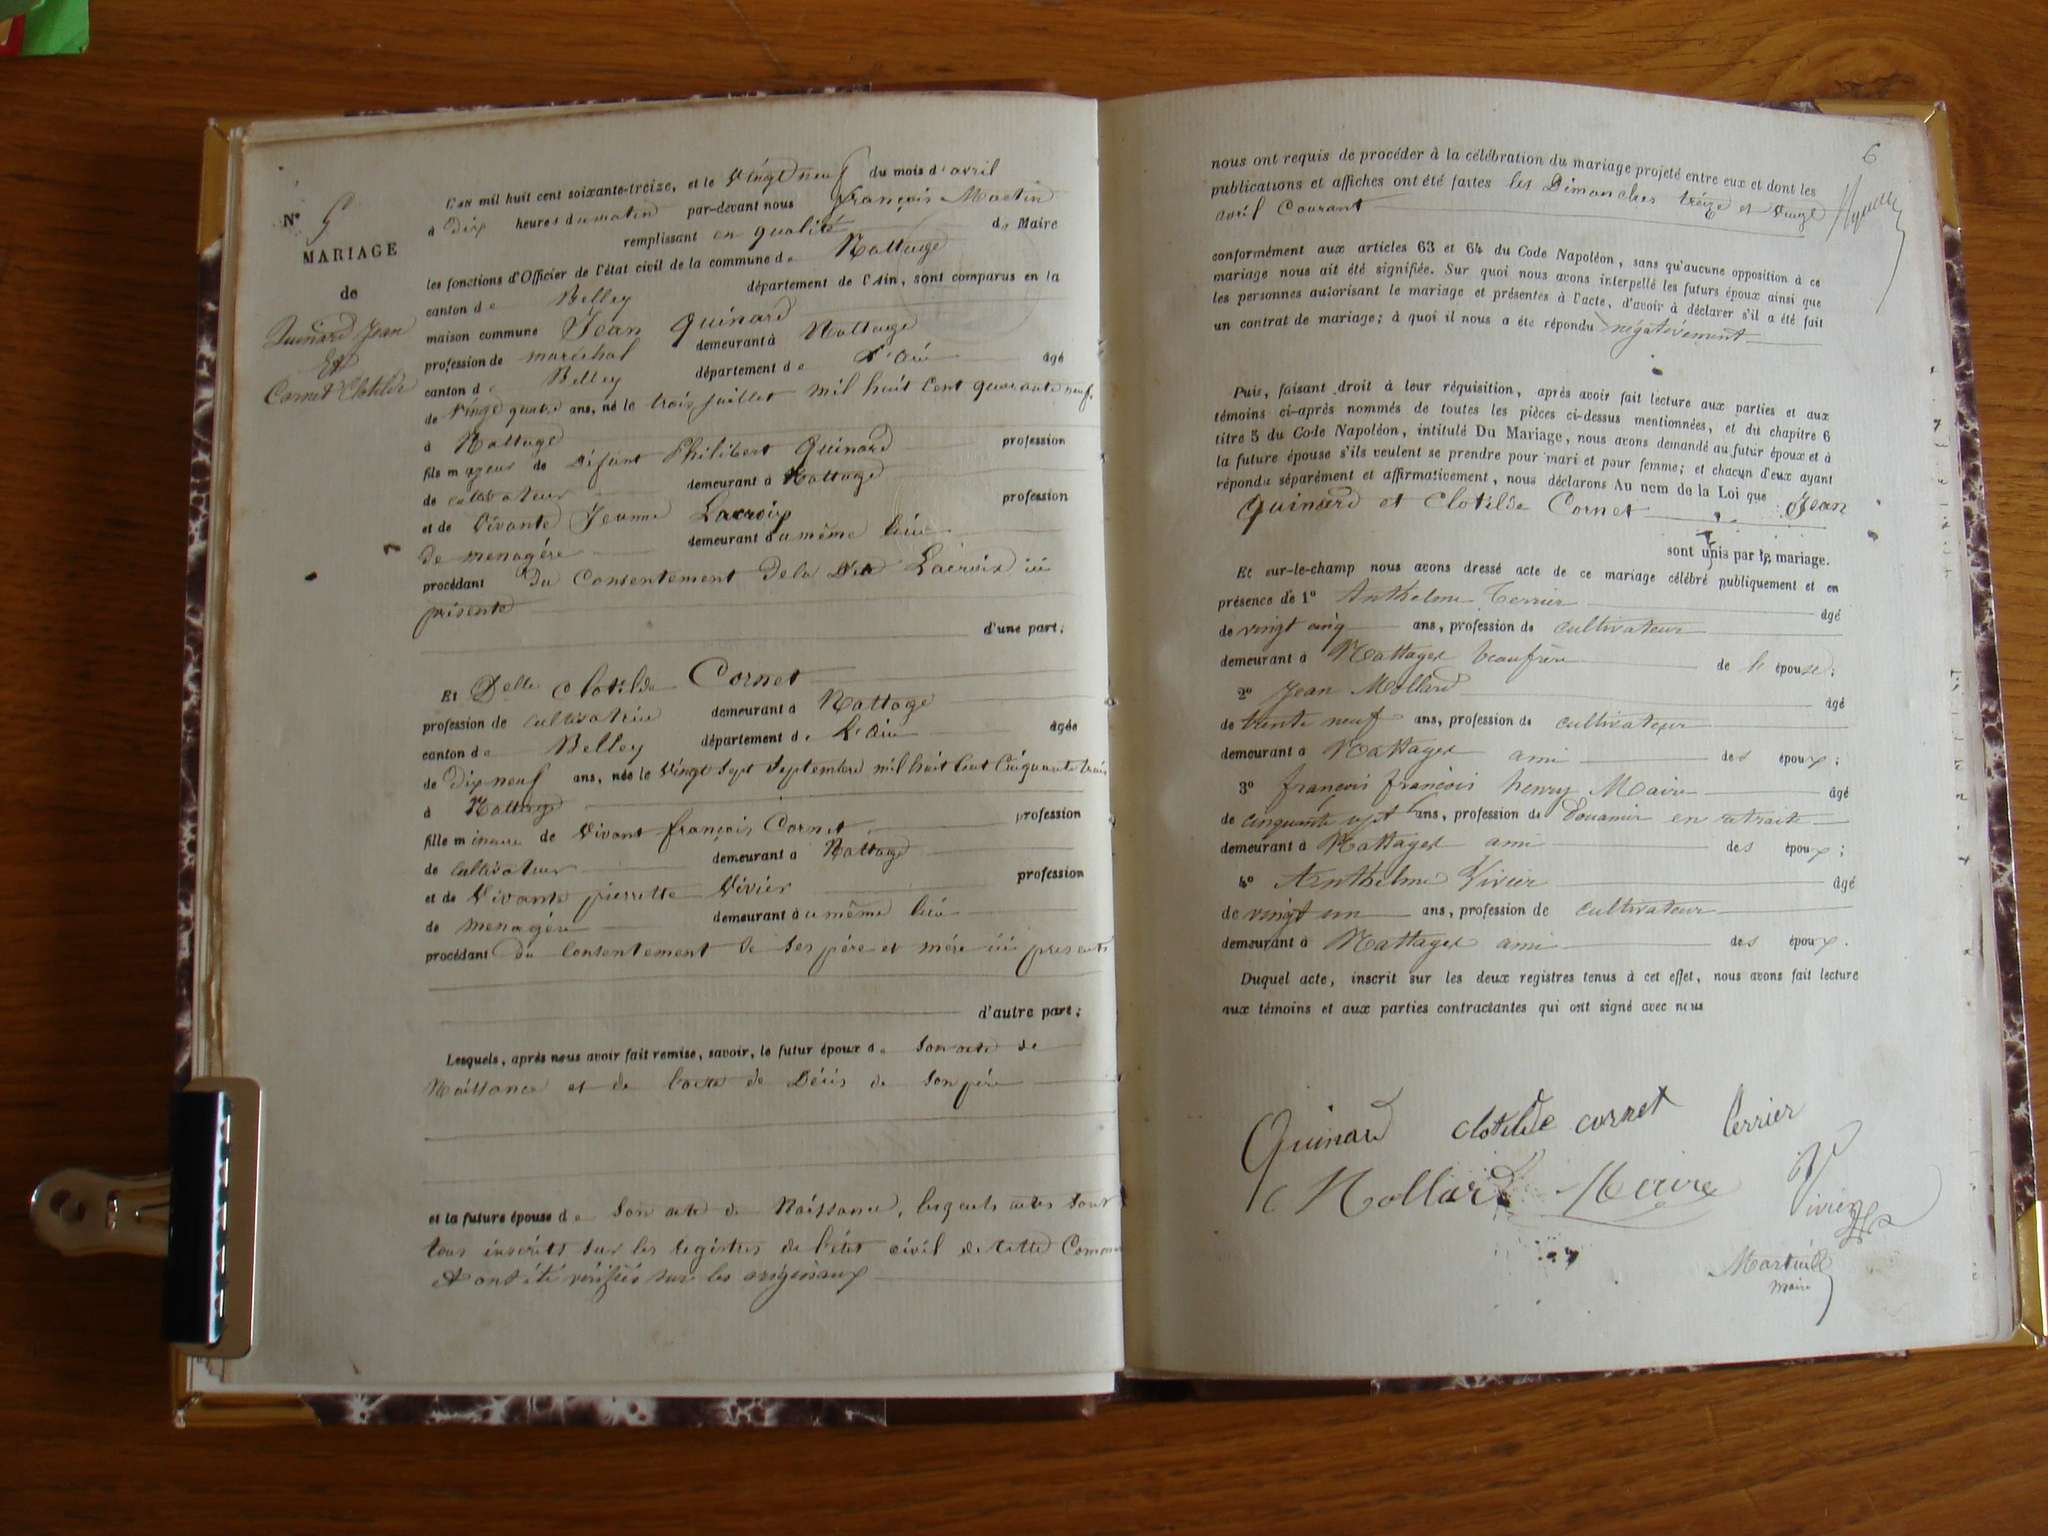 N° 5
MARIAGE
de
Quinard Jean
Et
Cornet Clotilde
L'an mil huit cent soixante-treize, et le Vingt neuf du mois d'avril
à Dix heures du matin par-devant nous françois Martin
remplissant en qualité de Maire
les fonctions d'Officier de l'état civil de la commune de Nattage
canton de Belley département de l'Ain, sont comparus en la
maison commune Jean Quinard
profession de maréchal demeurant à Nattage
canton de Belley département de L'ain âgé
de Vingt quatre ans, né le trois juillet mil huit Cent quarante neuf
à Nattage
fils majeur de Défunt Philibert Quinard profession
de cultivateur demeurant à Nattage
et de Vivante Jeanne Lacroix profession
de menagère demeurant au même lieu
procédant du Consentement de la Dte Lacroix ici
présente
d'une part;
Et Delle Clotilde Cornet
profession de cultivatrice demeurant à Nattage
canton de Belley département de L'ain âgée
de Dix neuf ans, née le Vingt Sept Septembre mil huit Cent Cinquante trois
à Nattage
fille mineure de Vivant françois Cornet profession
de cultivateur demeurant à Nattage
et de Vivante pierrette Vivier profession
de menagère demeurant au même lieu
procédant du Consentement de Ses père et mère ici presents
d'autre part;
Lesquels, après nous avoir fait remise, savoir, le futur époux de Son acte de
Naissance et de l'acte de Décès de Son père
et la future épouse de Son acte de Naissance, lesquels actes Sont
tous inscrits Sur les registres de l'état civil de cette Commune
et ont été vérifiés sur les originaux
6
nous ont requis de procéder à la célébration du mariage projeté entre eux et dont les
publications et affiches ont été faites les Dimanches treize et vingt
avril Courant
conformément aux articles 63 et 64 du Code Napoléon, sans qu'aucune opposition à ce
mariage nous ait été signifiée. Sur quoi nous avons interpellé les futurs époux ainsi que
les personnes autorisant le mariage et présentes à l'acte, d'avoir à déclarer s'il a été fait
un contrat de mariage; à quoi il nous a été répondu négativement
Puis, faisant droit à leur réquisition, après avoir fait lecture aux parties et aux
témoins ci-après nommés de toutes les pièces ci-dessus mentionnées, et du chapitre 6
titre 5 du Code Napoléon, intitulé Du Mariage, nous avons demandé au futur époux et à
la future épouse s'ils veulent se prendre pour mari et pour femme; et chacun d'eux ayant
répondu séparément et affirmativement, nous déclarons Au nom de la Loi que Jean
Quinard et Clotilde Cornet
sont unis par le mariage.
Et sur-le-champ nous avons dressé acte de ce mariage célébré publiquement et en
présence de 1° Anthelme Terrier âgé
de vingt cinq ans, profession de cultivateur
demeurant à Nattages beaufrère de l'épouse;
2° Jean Mollard âgé
de trente neuf ans, profession de cultivateur
demeurant à Nattages ami des époux;
3° françois françois henry Maire âgé
de cinquante sept ans, profession de Douanier en retraite
demeurant à Nattages ami des époux;
4° Anthelme Vivier âgé
de vingt un ans, profession de cultivateur
demeurant à Nattages ami des époux.
Duquel acte, inscrit sur les deux registres tenus à cet effet, nous avons fait lecture
aux témoins et aux parties contractantes qui ont signé avec nous
Quinard clotilde cornet Terrier
Mollard Maire Vivier
Martin
maire